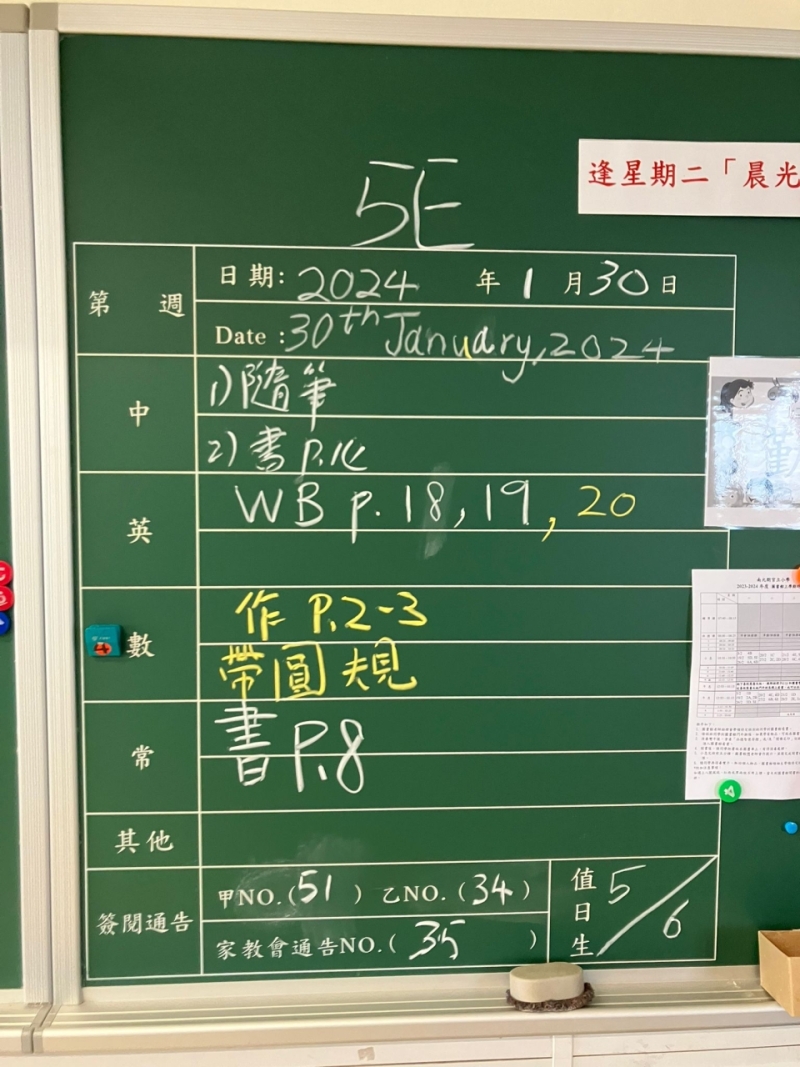 5E
逢星期二「晨光
第 週
日期: 2024 年 1 月 30 日
Date : 30th January, 2024
中
1) 隨筆
2) 書 P.16
英
WB p. 18, 19, 20
數
作 P.2-3
帶圓規
常
書 P.8
其他
簽閱通告
甲NO.(51) 乙NO.(34)
家教會通告NO.(35)
值日生 5/6